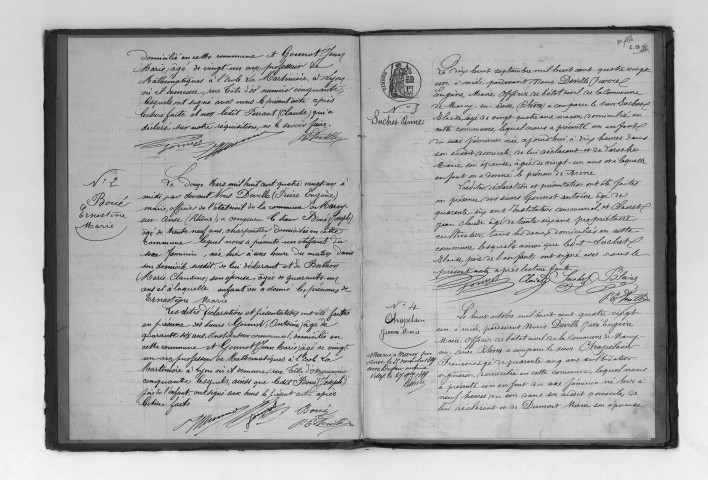 domicilié en cette commune et Gonnot (Jean
Marie) âgé de vingt un ans professeur de
Mathématiques à l'école La Martinière à Lyon
où il demeure, rue numéro cinquante
lesquels ont signé avec nous le présent acte après
lecture faite et non ledit Perraut (Claude) qui a
déclaré, sur notre réquisition, ne le savoir faire.
N° 2
Boué
Ernestine
Marie
Le Mars mil huit cent quatre vingt un à
midi par devant Nous Deville (Pierre Eugène)
maire, officier de l'état civil de la commune de Marcy
sur Anse (Rhône), a comparu le sieur Boué (Joseph)
âgé de trente neuf ans, charpentier domicilié en cette
commune lequel nous a présenté un enfant du
sexe féminin, née hier à une heure du matin dans
son domicile susdit, de lui déclarant et de Berthon
(Marie Claudine) son épouse, âgée de quarante un
ans et à laquelle enfant il a donné les prénoms de
Ernestine Marie
Les dites déclaration et présentation ont été faites
en présence des sieurs Gonnot (Antoine) âgé de
quarante six ans, Instituteur communal, domicilié en
cette commune et Gonnot (Jean Marie) âgé de vingt
un ans, professeur de Mathématiques à l'école La
Martinière à Lyon où il demeure, rue
cinquante lesquels, ainsi que ledit Boué (Joseph)
père de l'enfant, ont signé avec nous le présent acte après
lecture faite
Gonnot Boué
N° 3
Suchet Anne
Le dix huit septembre mil huit cent quatre vingt
un à midi, pardevant Nous Deville Pierre
Eugène Maire Officier de l'état civil de la Commune
de Marcy sur Anse, (Rhône) a comparu le sieur Suchet
Elie âgé de vingt quatre ans maçon domicilié en
cette commune, lequel nous a présenté un enfant
du sexe féminin née aujourd'hui à dix heures dans
son susdit domicile, de lui déclarant et de Laroche
Marie son épouse âgée de vingt un ans et à laquelle
enfant on a donné le prénom de Anne
Lesdites déclaration et présentation ont été faites
en présence des sieurs Gonnot Antoine âgé de
quarante six ans Instituteur communal et
Jean Claude âgé de trente six ans propriétaire
cultivateur, tous les deux domiciliés en cette
commune lesquels ainsi que ledit Suchet
Elie père de l'enfant ont signé avec nous le
présent acte après lecture faite
Gonnot Suchet
N° 4
Chapelain
Jeanne Marie
Le huit octobre mil huit cent quatre vingt
un à midi, pardevant Nous Deville Pierre Eugène
Maire Officier de l'état civil de la Commune de Marcy
sur Anse, Rhône, a comparu le sieur Chapelain
François âgé de quarante ans
vigneron, domicilié en cette commune, lequel nous
a présenté un enfant du sexe féminin née hier à
neuf heures du soir dans son susdit domicile, de
lui déclarant et de Dumont Marie son épouse